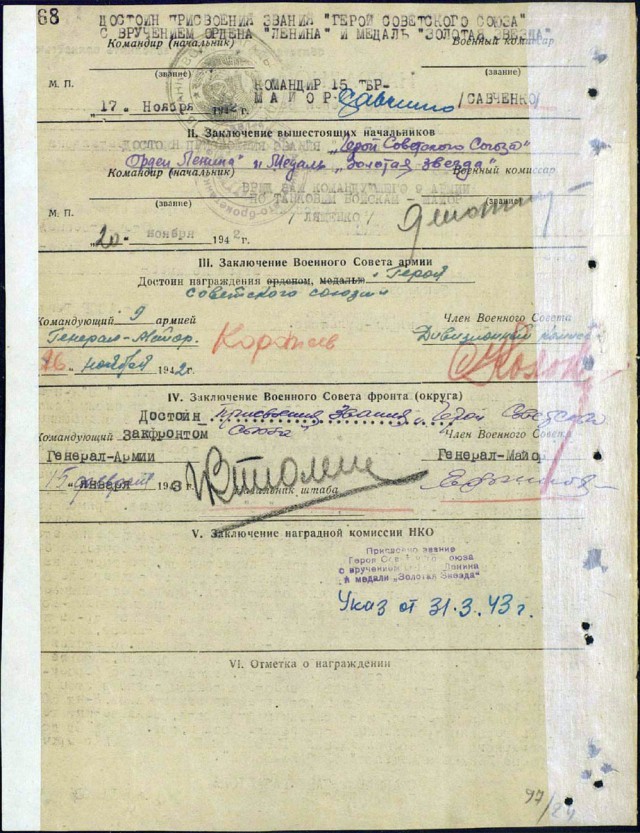 68
ДОСТОИН ПРИСВОЕНИЯ ЗВАНИЯ "ГЕРОЙ СОВЕТСКОГО СОЮЗА"
С ВРУЧЕНИЕМ ОРДЕНА "ЛЕНИНА" И МЕДАЛЬ "ЗОЛОТАЯ ЗВЕЗДА"
Командир (начальник) Военный комиссар
(звание) (звание)
М. П. КОМАНДИР 15 ТБР-
МАЙОР Савченко /САВЧЕНКО/
"17" Ноября 1942
II. Заключение вышестоящих начальников
ДОСТОИН ПРИСВОЕНИЯ ЗВАНИЯ „Герой Советского Союза"
Орден Ленина" и Медаль „Золотая Звезда"
Командир (начальник) Военный комиссар
ВРИД ЗАМ КОМАНДУЮЩЕГО 9 АРМИИ
(звание) ПО ТАНКОВЫМ ВОЙСКАМ - МАЙОР (звание)
М. П. /ЛЯМЕНКО/
"20" ноября 1942
III. Заключение Военного Совета армии
Достоин награждения орденом, медалью „Героя
Советского Союза"
Командующий 9 армией Член Военного Совета
Генерал-Майор Коротеев Дивизионный
"26" ноября 1942 г.
IV. Заключение Военного Совета фронта (округа)
Достоин присвоения звания „Герой Советского
Союза"
Командующий Закфронтом Член Военного Совета
Генерал-Армии Генерал-Майор
"15" февраля января 1943 Начальник штаба Ефимов
V. Заключение наградной комиссии НКО
Присвоено звание
Героя Союза
с вручением Ленина
и медали „Золотая Звезда"
Указ от 31.3.43 г.
VI. Отметка о награждении
97/24